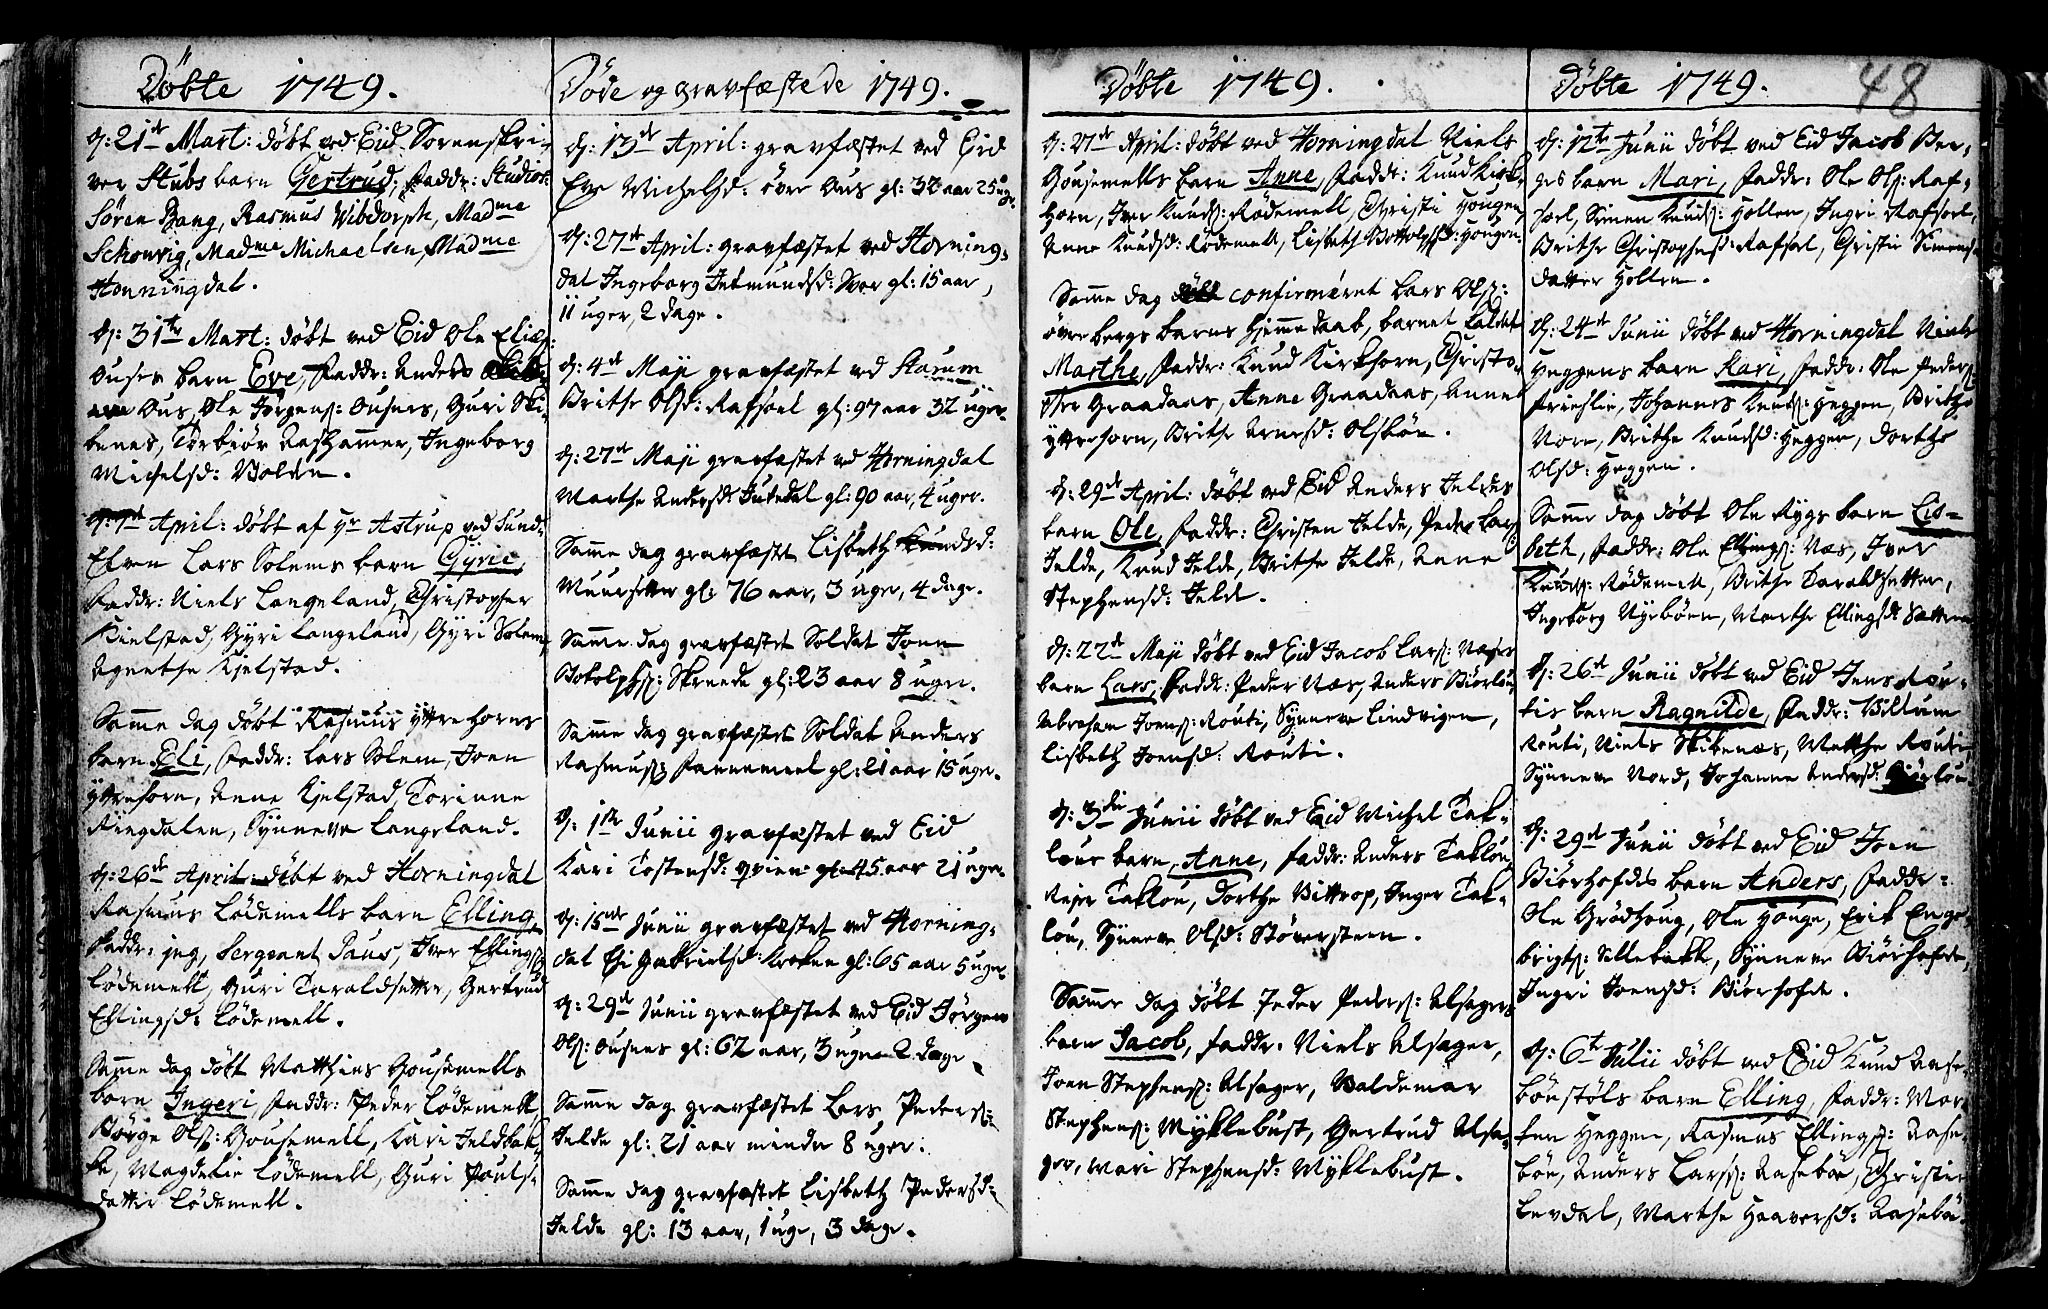 Döbte 1749.
d: 21de Mart: döbt ved Eid Sorenskri-
ver Stubs barn Gertrud, Faddr: Studios:
Sören Bang, Rasmus Wibdorph, Madme
Schonvig, Madme Michaelsen, Madme
Honningdal.
d: 31te Mart: döbt ved Eid Ole Eliæs:
Ouses barn Eve, Faddr: Anders
Ous, Ole Jörgens: Ousnes, Guri Ski-
benes, Torbiör Rashammer, Ingeborg
Michelsd: Bolden.
d: 7de April: döbt af Hr Astrup ved Lund-
Elven Lars Solems barn Gyrie,
Faddr: Niels Langeland, Christopher
Kielstad, Gyri Langeland, Gyri Solem,
Agnethe Kjelstad.
Samme dag döbt Rasmus ytrehorns
barn Eli, Faddr: Lars Solem, Joen
ytrehorn, Anne Kjelstad, Torinne
Ringdalen, Synneve Langeland.
d: 26de April: döbt ved Horningdal
Rasmus Lödemells barn Elling,
Faddr: jeg, Sergeant Paus, Iver Ellings:
Lödemell, Guri Taraldsetter, Gertrud
Ellingsd: Lödemell.
Samme dag döbt Matthias Gousemells
barn Ingeri, Faddr: Peder Lödemell
Börge Ols: Gousemell, Kari Jeldbak-
ke, Magdelie Lödemell, Guri Pouls-
datter Lödemell.
Döde og gravfæstede 1749.
d: 13de April: gravfæstet ved Eid
Eve Michelsd: övre Ous gl: 32 aar 25 uger.
d: 27de April: gravfæstet ved Horning-
dal Ingeborg Jetmundsd: Svor gl: 15 aar,
11 uger, 2 dage.
d: 4de Maji gravfæstet ved Starum
Brithe Olsd: Rafsoel gl: 97 aar 32 uger.
d: 27de Maji gravfæstet ved Horningdal
Marthe Andersd: Jutedal gl: 90 aar, 4 uger.
Samme dag gravfæstet Lisbeth Knudsd:
Muursetter gl: 76 aar, 3 uger, 4 dage.
Samme dag gravfæstet Soldat Joen
Botolphs: Skreede gl: 23 aar 8 uger.
Samme dag gravfæstet Soldat Anders
Rasmus: Pannemeel gl: 21 aar 15 uger.
d: 1ste Junii gravfæstet ved Eid
Kari Tostensd: qvien gl: 45 aar 21 uger.
d: 15nde Junii gravfæstet ved Horning-
dal Eli Gabrielsd: Kroken gl: 65 aar 5 uger.
d: 29de Junii gravfæstet ved Eid Jörgen
Ols: Ousnes gl: 62 aar, 3 uger 2 dage.
Samme dag gravfæstet Lars Peders:
Jelde gl: 21 aar mindre 8 uger.
Samme dag gravfæstet Lisbeth Pedersd:
Jelde gl: 13 aar, 1 uge, 3 dage.
Döbte 1749.
d: 27de April: döbt ved Horningdal Niels
Gousemells barn Anne, Faddr: Knud Kirk-
horn, Iver Knuds: Rödemell, Christi Hougen,
Anne Knudsd: Rödemell, Lisbeth Bottolphsd: Hougen.
Samme dag confirmeret Lars Ols:
övrebergs barns hjemmedaab, barnet kaldet
Marthe, Faddr: Knud Kirkhorn, Christo-
pher Graadaas, Anne Graadaas, Anne
ytrehorn, Brithe Arnesd: Olsböe.
d: 29de April: döbt ved Eid Anders Jeldes
barn Ole, Faddr: Christen Jelde, Peder Lars:
Jelde, Knud Jelde, Brithe Jelde, Anne
Stephensd: Jelde.
d: 22de Maji döbt ved Eid Jacob Lars: Næses
barn Lars, Faddr: Peder Næs, Anders Biörlou,
Abraham Joens: Routi, Synneve Lindvigen,
Lisbeth Joensd: Routi.
d: 3die Junii döbt ved Eid Michel Tak-
lous barn, Anne, faddr: Anders Taklou,
Rejer Taklou, Dorthe Vittrop, Inger Tak-
lou, Synneve Olsd: Störesteen.
Samme dag döbt Peder Peders: Alsagers
barn Jacob, faddr: Niels Alsager,
Joen Stephens: Alsager, Valdemar
Stephens: Myklebust, Gertrud Alsa-
ger, Mari Stephensd: Myklebust.
Döbte 1749.
48
d: 12te Junii döbt ved Eid Jacob Ber-
ges barn Mari, Faddr: Ole Ols: Raf-
soel, Simen Knuds: Hollen, Ingri Rafsoel,
Brithe Christophersd: Rafsoel, Christie Simens-
datter Hollen.
d: 24de Junii döbt ved Horningdal Niels
Heggens barn Kari, Faddr: Ole Peders:
Frieslie, Johannes Knuds: Heggen, Brithe
Nore, Brithe Knudsd: Heggen, Dorthe
Olsd: Heggen.
Samme dag döbt Ole Rygs barn Lis-
beth, Faddr: Ole Ellings: Næs, Iver
Knuds: Rödemell, Brithe Taraldsetter,
Ingeborg Nyebøen, Marthe Ellingsd: Sætteren
d: 26de Junii döbt ved Eid Jens Rou-
tis barn Ragnilde, Faddr: Villum
Routi, Niels Skibenæs, Marthe Routi
Synneve Nord, Johanne Andersd: Biörlou.
d: 29de Junii döbt ved Eid Joen
Biörhofdes barn Anders, Faddr:
Ole Grödhoug, Ole Houge, Erik Enge-
brigts: Sillebakk, Synneve Biörhofde,
Ingri Joensd: Biörhofde.
d: 6te Julii döbt ved Eid Knud Aase-
böestöls barn Elling, Faddr: Mor-
ten Heggen, Rasmus Ellings: Aase-
böe, Anders Lars: Aaseböe, Christie
Levdal, Marthe Haaversd: Aaseböe.